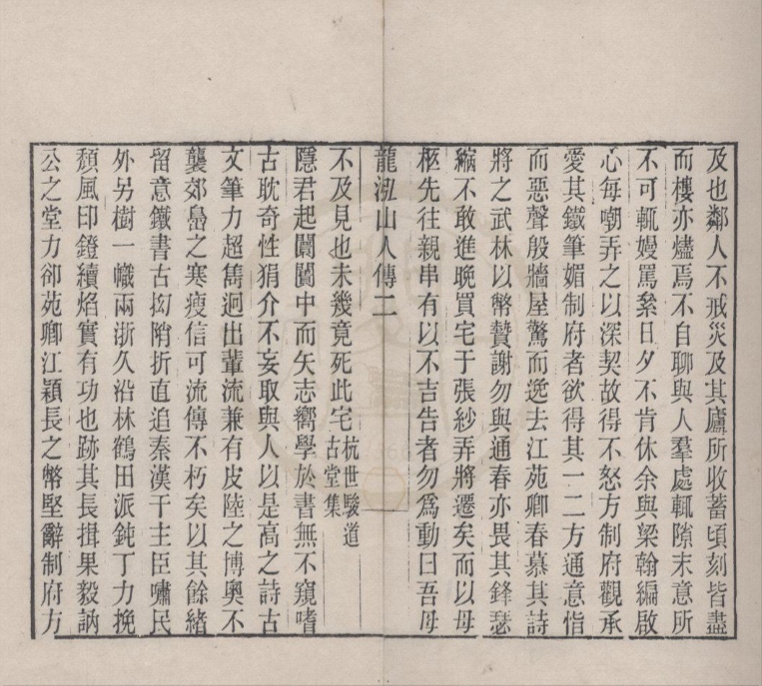 及也鄰人不戒災及其廬所收蓄頃刻皆盡
而樓亦燼焉不自聊與人羣處輒隙末意所
不可輒嫚罵絫日夕不肯休余與梁翰編啟
心每嘲弄之以深契故得不怒方制府觀承
愛其鐵筆媚制府者欲得其一二方通意恉
而惡聲殷牆屋驚而逸去江苑卿春慕其詩
將之武林以幣贄謝勿與通春亦畏其鋒瑟
縮不敢進晚買宅于張紗弄將遷矣而以母
柩先往親串有以不吉告者勿爲動曰吾母
不及見也未幾竟死此宅杭世駿道古堂集
龍泓山人傳二
隱君起闤闠中而矢志嚮學於書無不窺嗜
古耽奇性狷介不妄取與人以是高之詩古
文筆力超雋迥出輩流兼有皮陸之博奧不
襲郊島之寒瘦信可流傳不朽矣以其餘緒
留意鐵書古抝陗折直追秦漢于主臣嘯民
外另樹一幟兩浙久沿林鶴田派鈍丁力挽
頹風印鐙續焰實有功也跡其長揖果毅訥
公之堂力卻苑卿江穎長之幣堅辭制府方